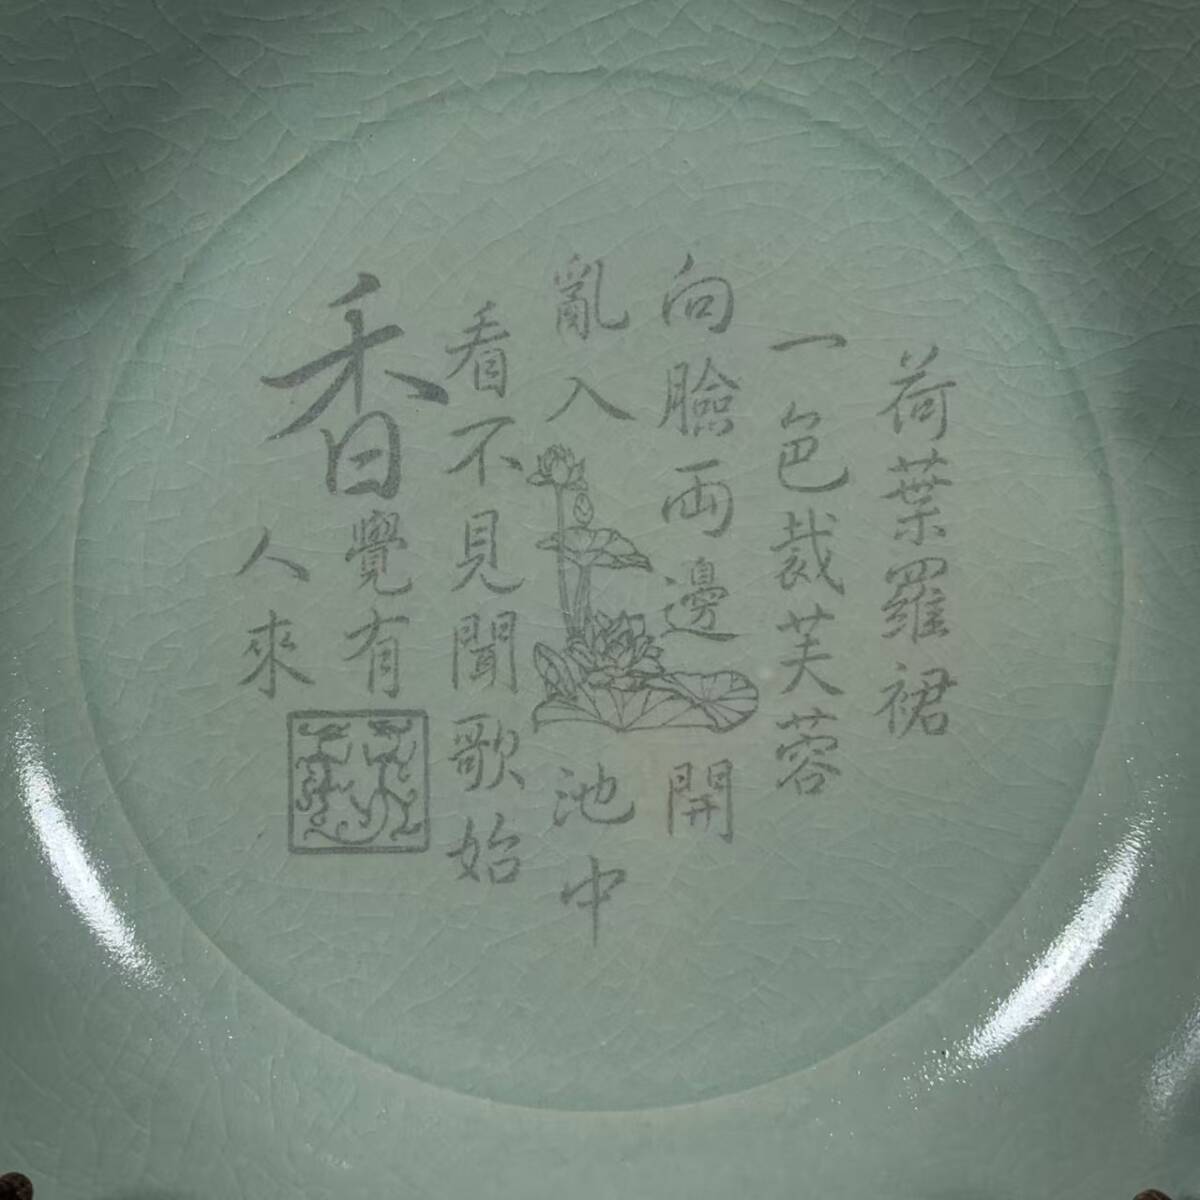 荷葉羅裙
一色裁芙蓉
向臉両邊開
亂入池中
看不見聞歌始
香覺有
人來